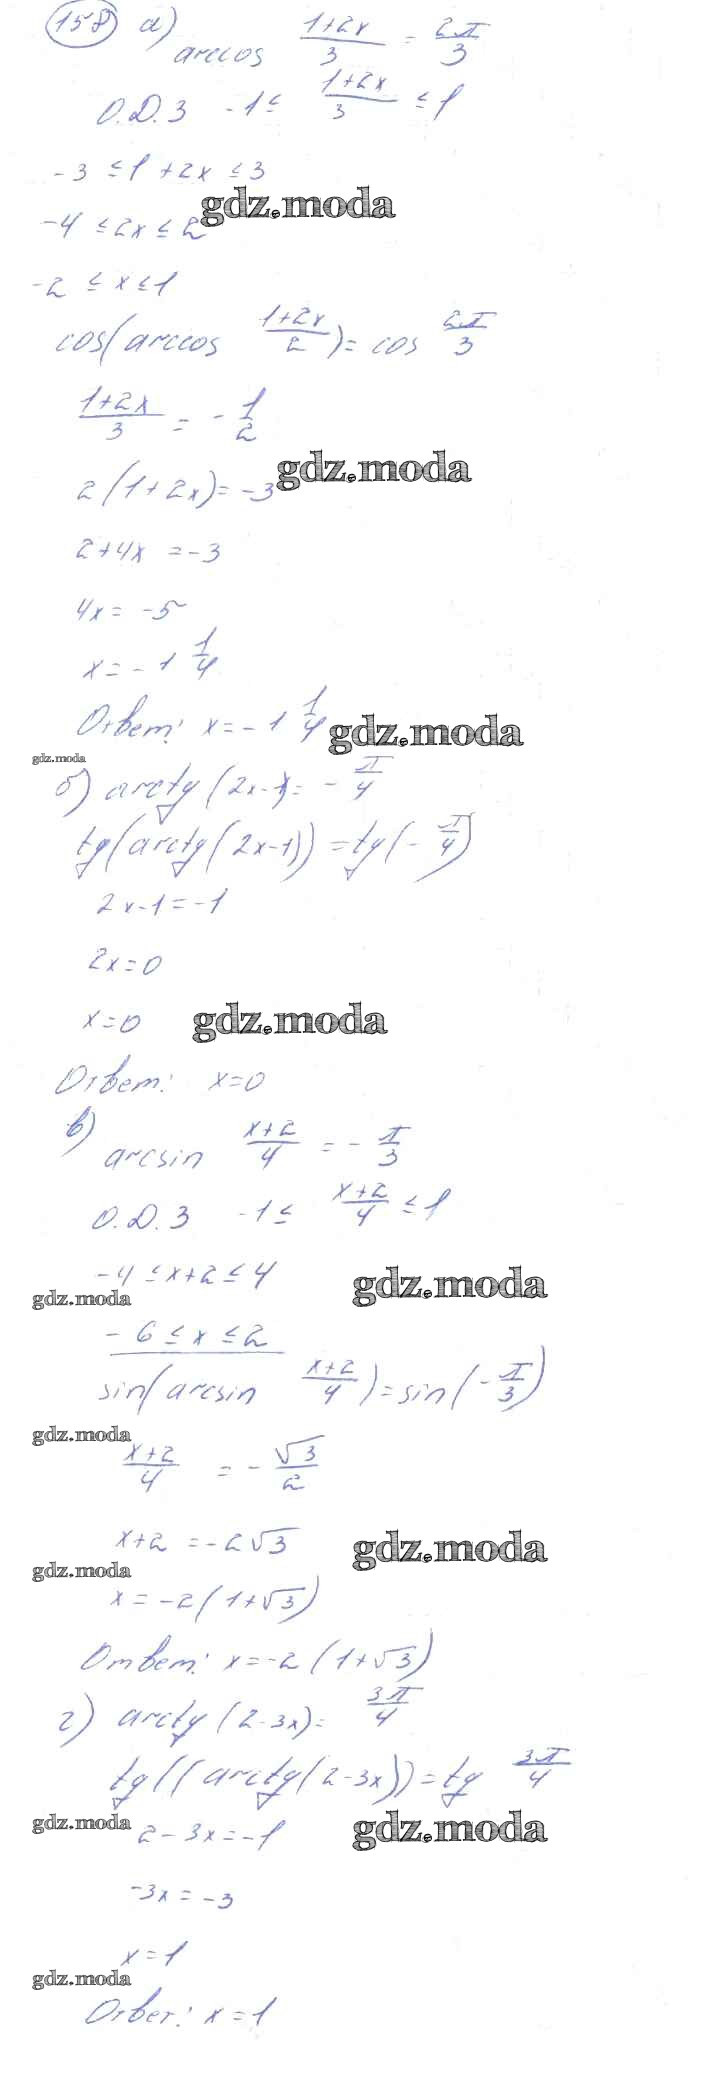 158 а) arccos (1+2x)/3 = 2π/3
О.Д.З -1 ≤ (1+2x)/3 ≤ 1
-3 ≤ 1 + 2x ≤ 3
gdz.moda
-4 ≤ 2x ≤ 2
-2 ≤ x ≤ 1
cos(arccos (1+2x)/2) = cos 2π/3
(1+2x)/3 = - 1/2
gdz.moda
2(1+2x) = -3
2+4x = -3
4x = -5
x = -1 1/4
Ответ: x = -1 1/4
gdz.moda
gdz.moda
б) arctg(2x-1) = - π/4
tg(arctg(2x-1)) = tg(- π/4)
2x-1 = -1
2x = 0
x = 0
gdz.moda
Ответ: x = 0
в)
arcsin (x+2)/4 = - π/3
О.Д.З -1 ≤ (x+2)/4 ≤ 1
-4 ≤ x+2 ≤ 4
gdz.moda
gdz.moda
-6 ≤ x ≤ 2
sin(arcsin (x+2)/4) = sin(- π/3)
gdz.moda
(x+2)/4 = - √3/2
x+2 = -2√3
gdz.moda
gdz.moda
x = -2(1+√3)
Ответ: x = -2(1+√3)
г) arctg(2-3x) = 3π/4
tg((arctg(2-3x)) = tg 3π/4
gdz.moda
2-3x = -1
gdz.moda
-3x = -3
x = 1
gdz.moda
Ответ: x = 1